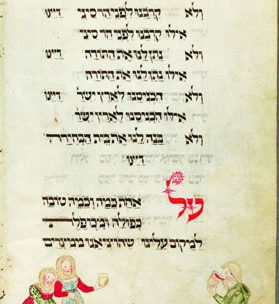 ולא קרבנו לפני הר סיני דיינו
אילו קרבנו לפני הר סיני
ולא נתן לנו את התורה דיינו
אילו נתן לנו את התורה
ולא הכניסנו לארץ ישר׳ דיינו
אילו הכניסנו לארץ ישר׳
ולא בנה לנו את בית הבחירה
דיינו
על אחת כמה וכמה טובה
כפולה ומכופלת
למקום עלינו שהוציאנו ממצרים